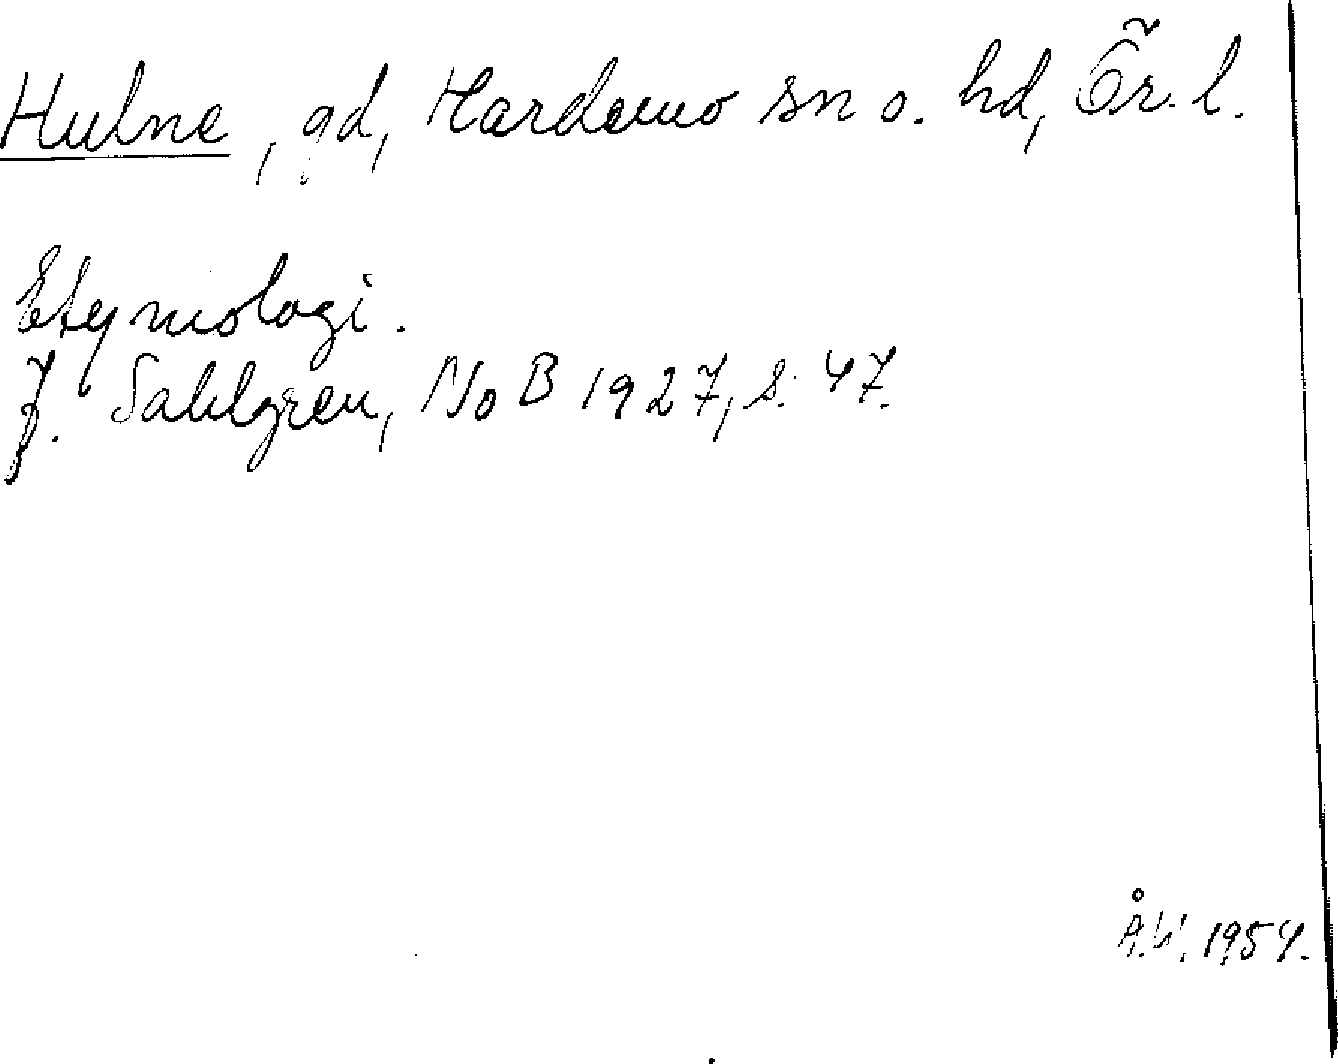 Hulne, gd, Hardemo sn o. hd, Ör. l.
Etymologi.
J. Sahlgren, NoB 1927, s. 47.
Å.H. 1954.